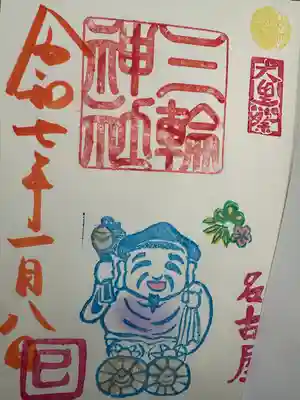 大黒祭
三輪
神社
名古屋
令和七年一月八日
巳